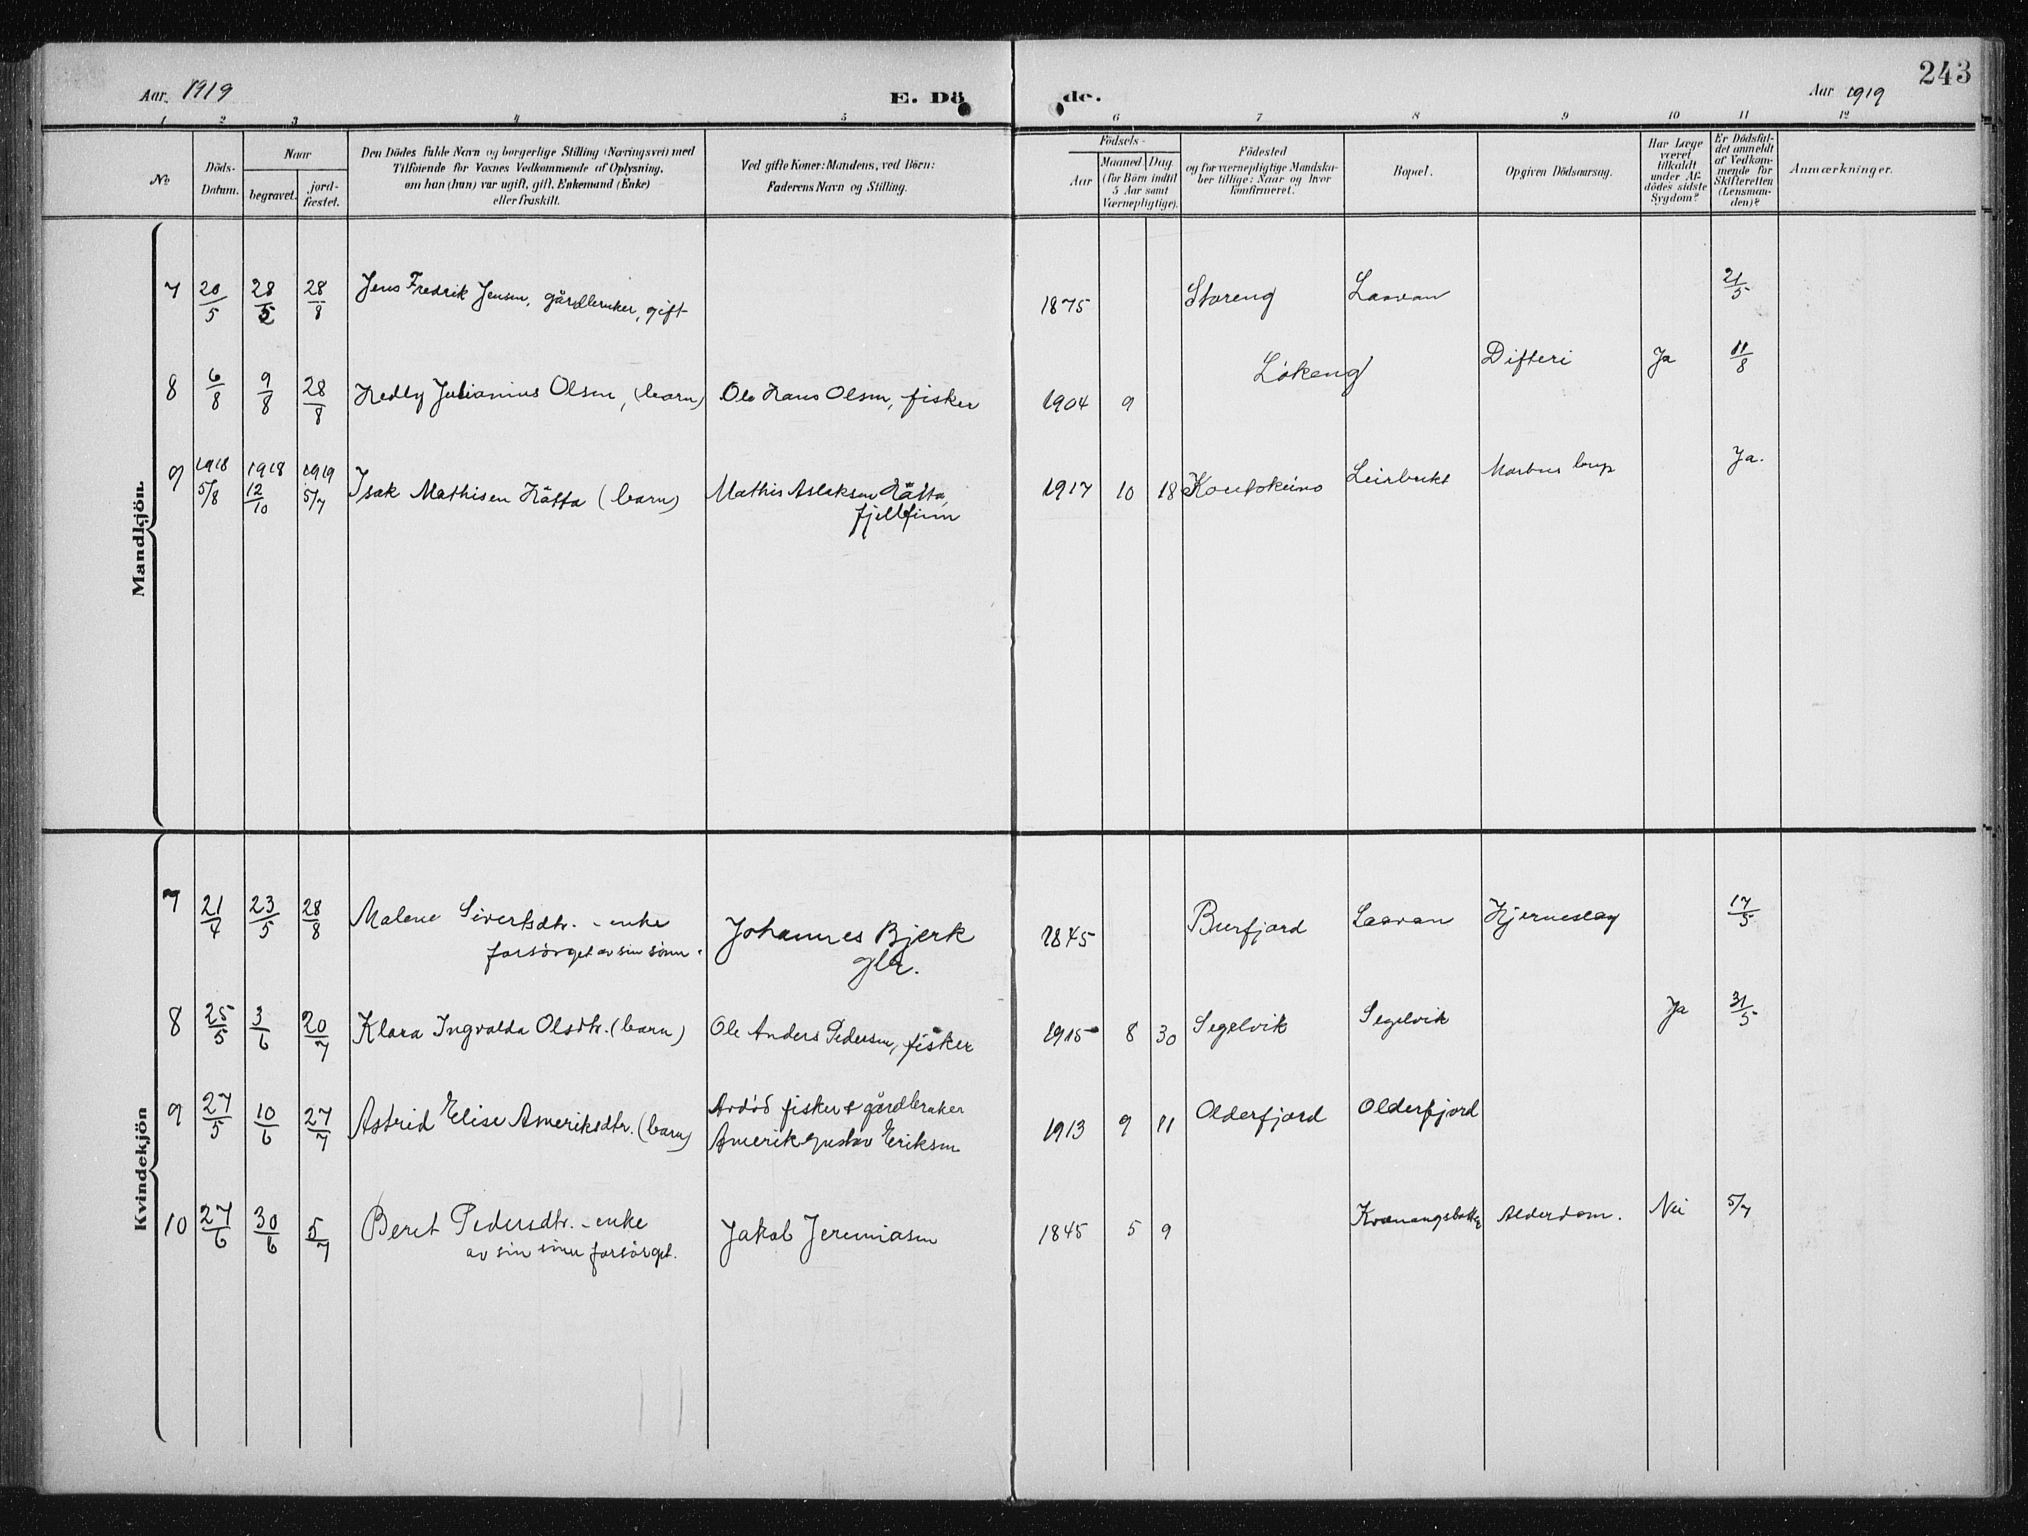 243
Aar. 1919
E. Dö
de.
Aar 1919
1 2 3 4 5 6 7 8 9 10 11 12
No
Döds-
Datum.
Naar
begravet.
jord-
fæstet.
Den Dödes fulde Navn og borgerlige Stilling (Næringsvei) med
Tilföiende for Voxnes Vedkommende af Oplysning,
om han (hun) var ugift, gift, Enkemand (Enke)
eller fraskilt.
Ved gifte Koner: Mandens, ved Börn:
Faderens Navn og Stilling.
Födsels-
Aar
Maaned Dag.
(for Börn indtil
5 Aar samt
Værnepligtige).
Födested
og for værnepligtige Mandska-
ber tillige: Naar og hvor
konfirmeret.
Bopæl.
Opgiven Dödsaarsag.
Har Læge
været
tilkaldt
under Af-
dödes sidste
Sygdom?
Er Dödsfal-
det anmeldt
af Vedkom-
mende for
Skifteretten
(Lensman-
den)?
Anmærkninger.
Mandkjön.
7 20/5 28/5 28/8 Jens Fredrik Jensen, gårdbruker, gift 1875 Storeng Laavan 21/5
8 6/8 9/8 28/8 Hedly Julianius Olsen, (barn) Ole Hans Olsen, fisker 1904 9 Løkeng Difteri Ja 11/8
9 1918 5/8 1918 12/10 1919 5/7 Isak Mathisen Hätta (barn) Mathis Aslaksen Hätta,
fjellfinn
1917 10 18 Koutokeino Leirbukt Morbus Ja.
Kvindekjön
7 21/4 23/5 28/8 Malene Sivertsdtr. - enke
forsörget av sin sönn.
Johannes Bjerk
gbr.
1845 Burfjord Laavan Hjerneslag 17/5
8 25/5 3/6 20/7 Klara Ingvalda Olsdtr. (barn) Ole Anders Pedersen, fisker 1915 8 30 Segelvik Segelvik Ja 31/5
9 27/5 10/6 27/7 Astrid Elise Ameriksdtr. (barn) Avdöd fisker & gårdbruker
Amerik Gustav Eriksen
1913 9 11 Olderfjord Olderfjord
10 27/6 30/6 5/7 Beret Pedersdtr. - enke
av sin sönn forsörget.
Jakob Jeremiasen 1845 5 9 Kvænangsbotn Alderdom. Nei 5/7